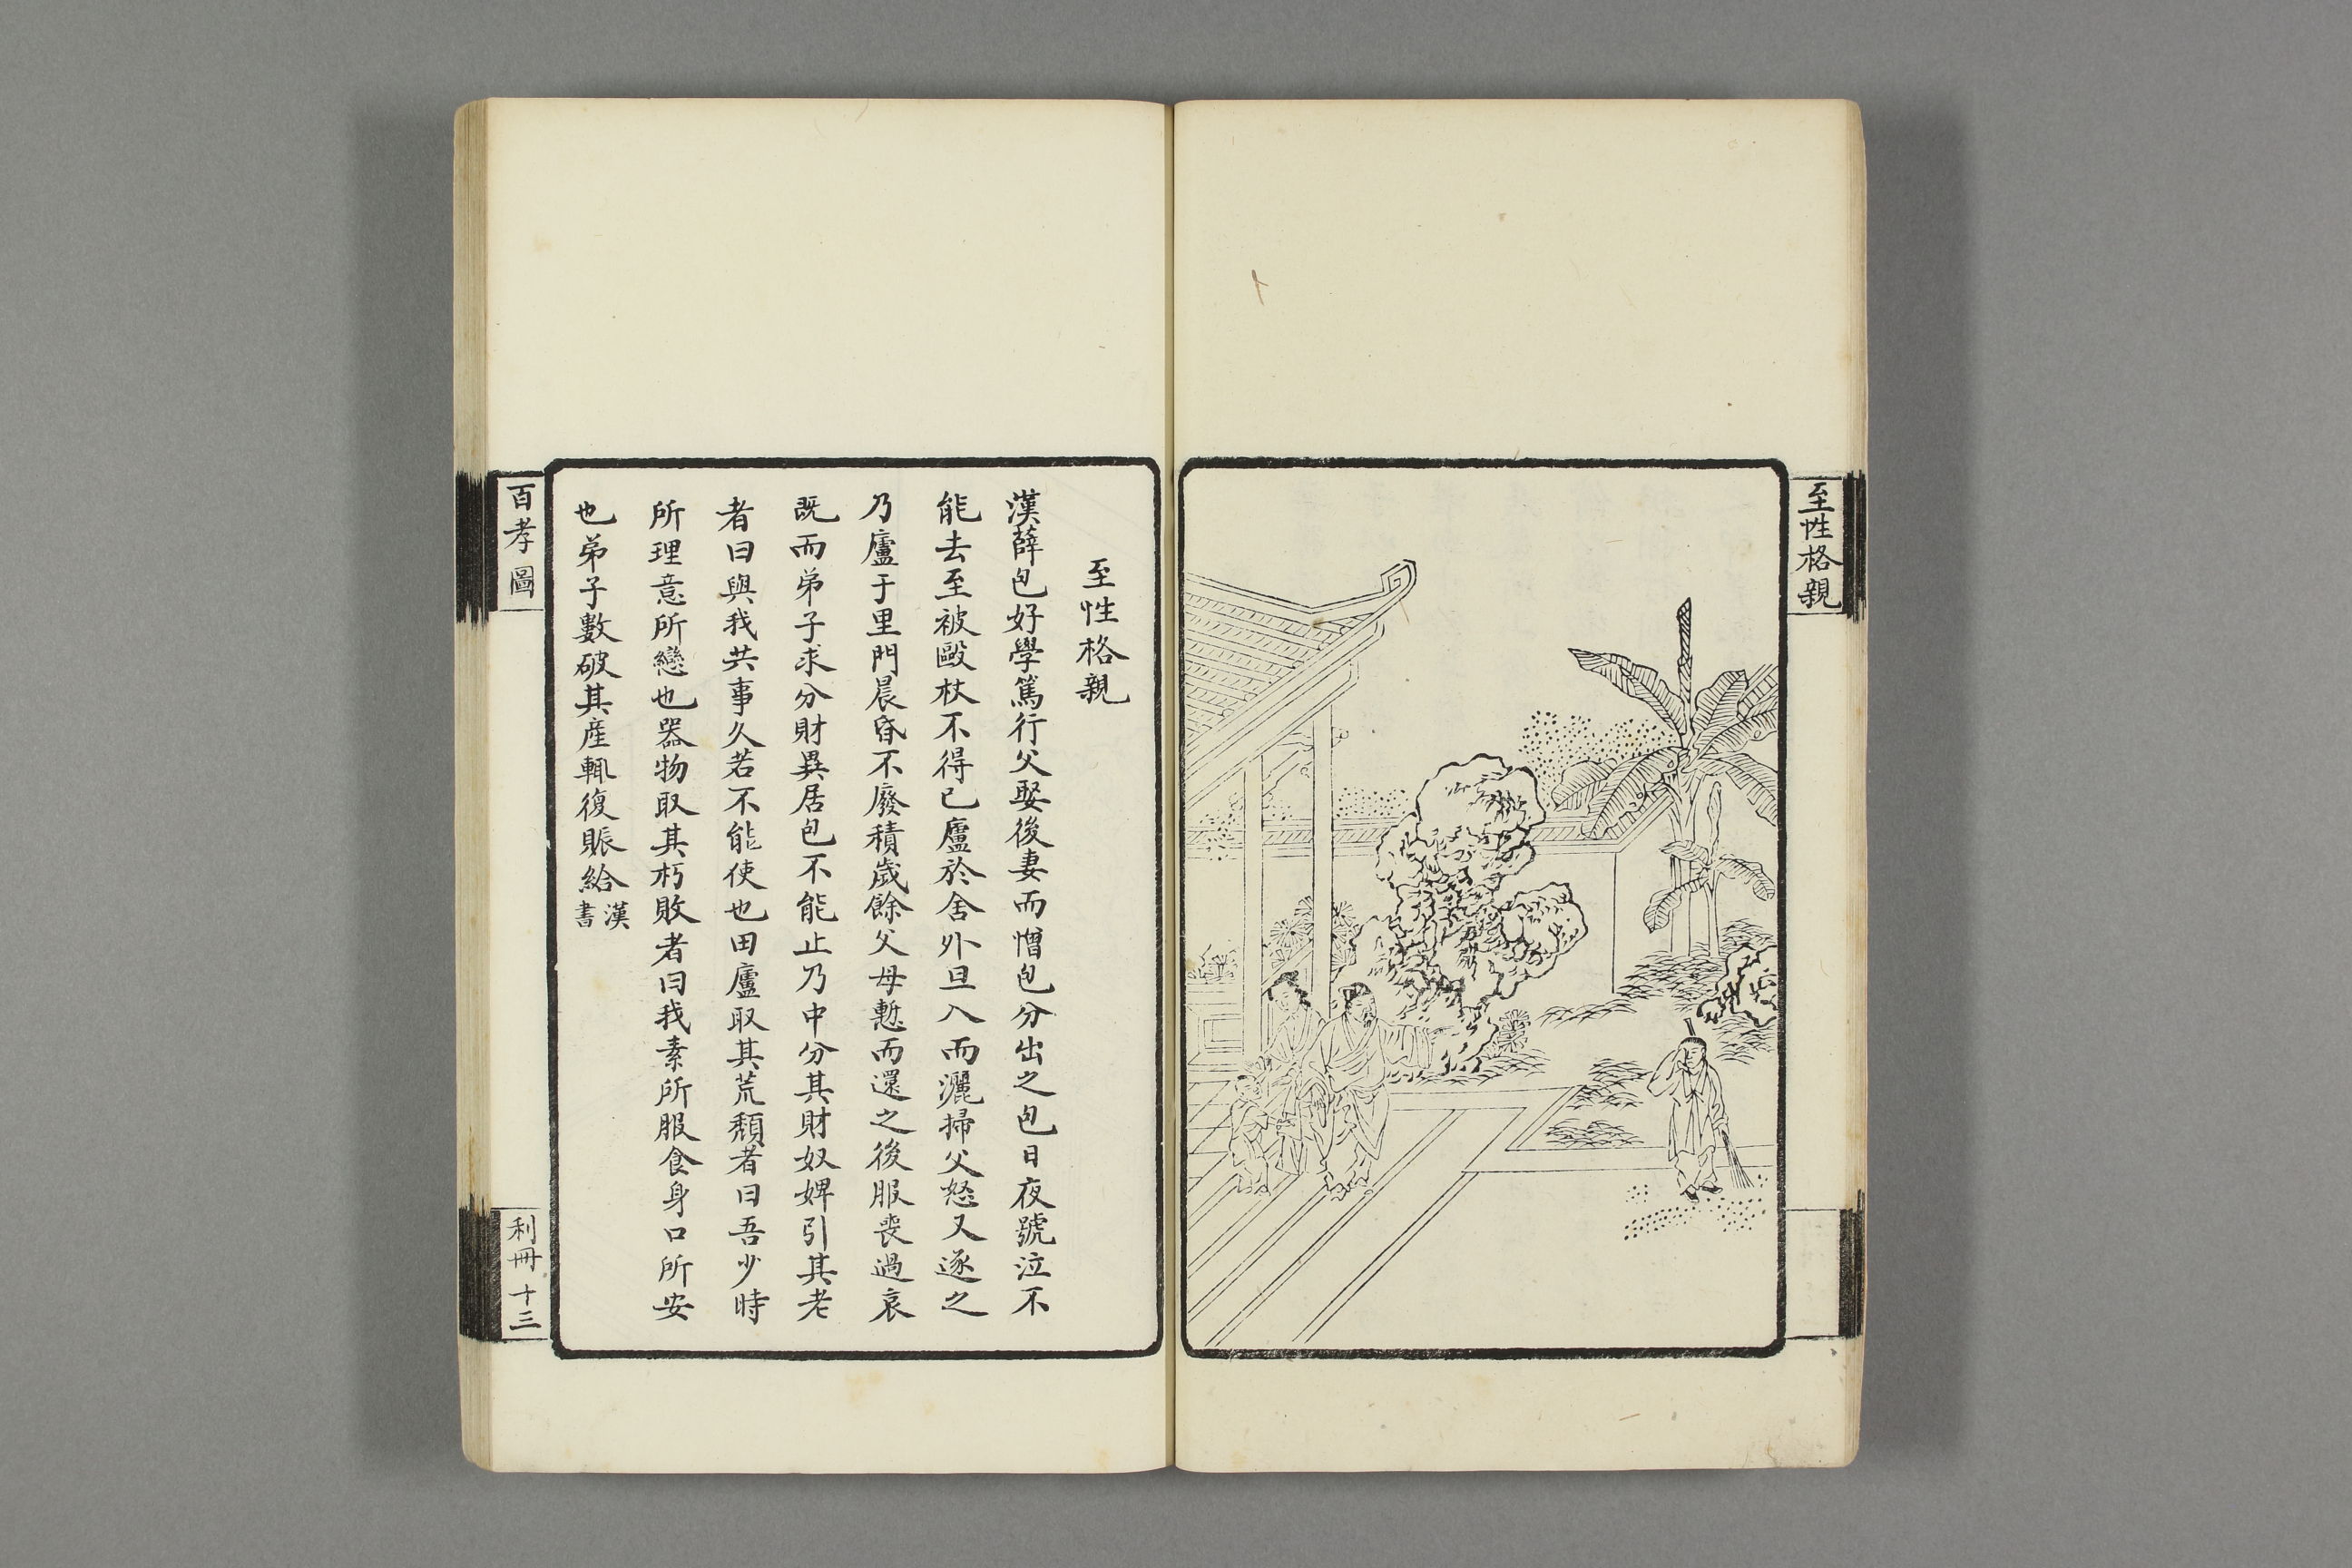 至性格親
至性格親
漢薛包好學篤行父娶後妻而憎包分出之包日夜號泣不
能去至被毆杖不得已廬於舍外旦入而灑掃父怒又逐之
乃廬于里門晨昏不廢積歲餘父母慙而還之後服喪過哀
既而弟子求分財異居包不能止乃中分其財奴婢引其老
者曰與我共事久若不能使也田廬取其荒頹者曰吾少時
所理意所戀也器物取其朽敗者曰我素所服食身口所安
也弟子數破其產輒復賑給漢
書
百孝圖
利冊 十三